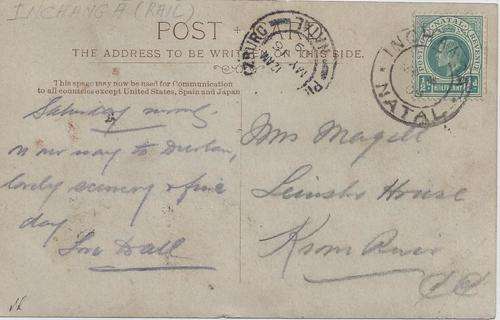 INCHANGA (RAIL)
POST CARD
THE ADDRESS TO BE WRITTEN ON THIS SIDE.
This space may now be used for Communication
to all countries except United States, Spain and Japan
NATAL
MY 9
12 AM
INCHANGA
NATAL
NATAL REVENUE
HALFPENNY
Saturday morng.
n our way to Durban,
lovely scenery & fine
day.
Mrs Magill
House
Krom River
CC